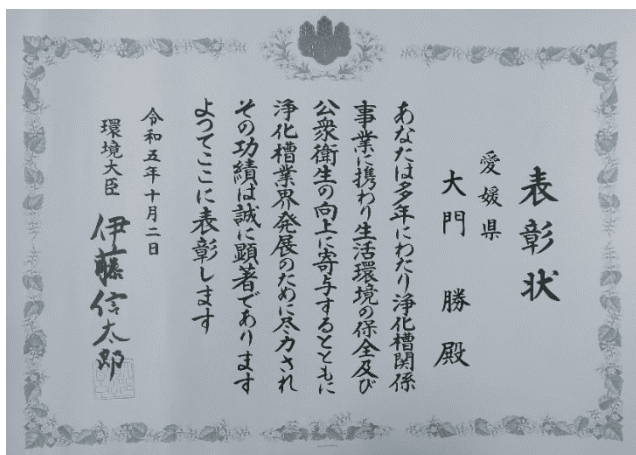 表彰状
愛媛県
大門 勝 殿
あなたは多年にわたり浄化槽関係
事業に携わり生活環境の保全及び
公衆衛生の向上に寄与するとともに
浄化槽業界発展のために尽力され
その功績は誠に顕著であります
よってここに表彰します
令和五年十月二日
環境大臣 伊藤信太郎